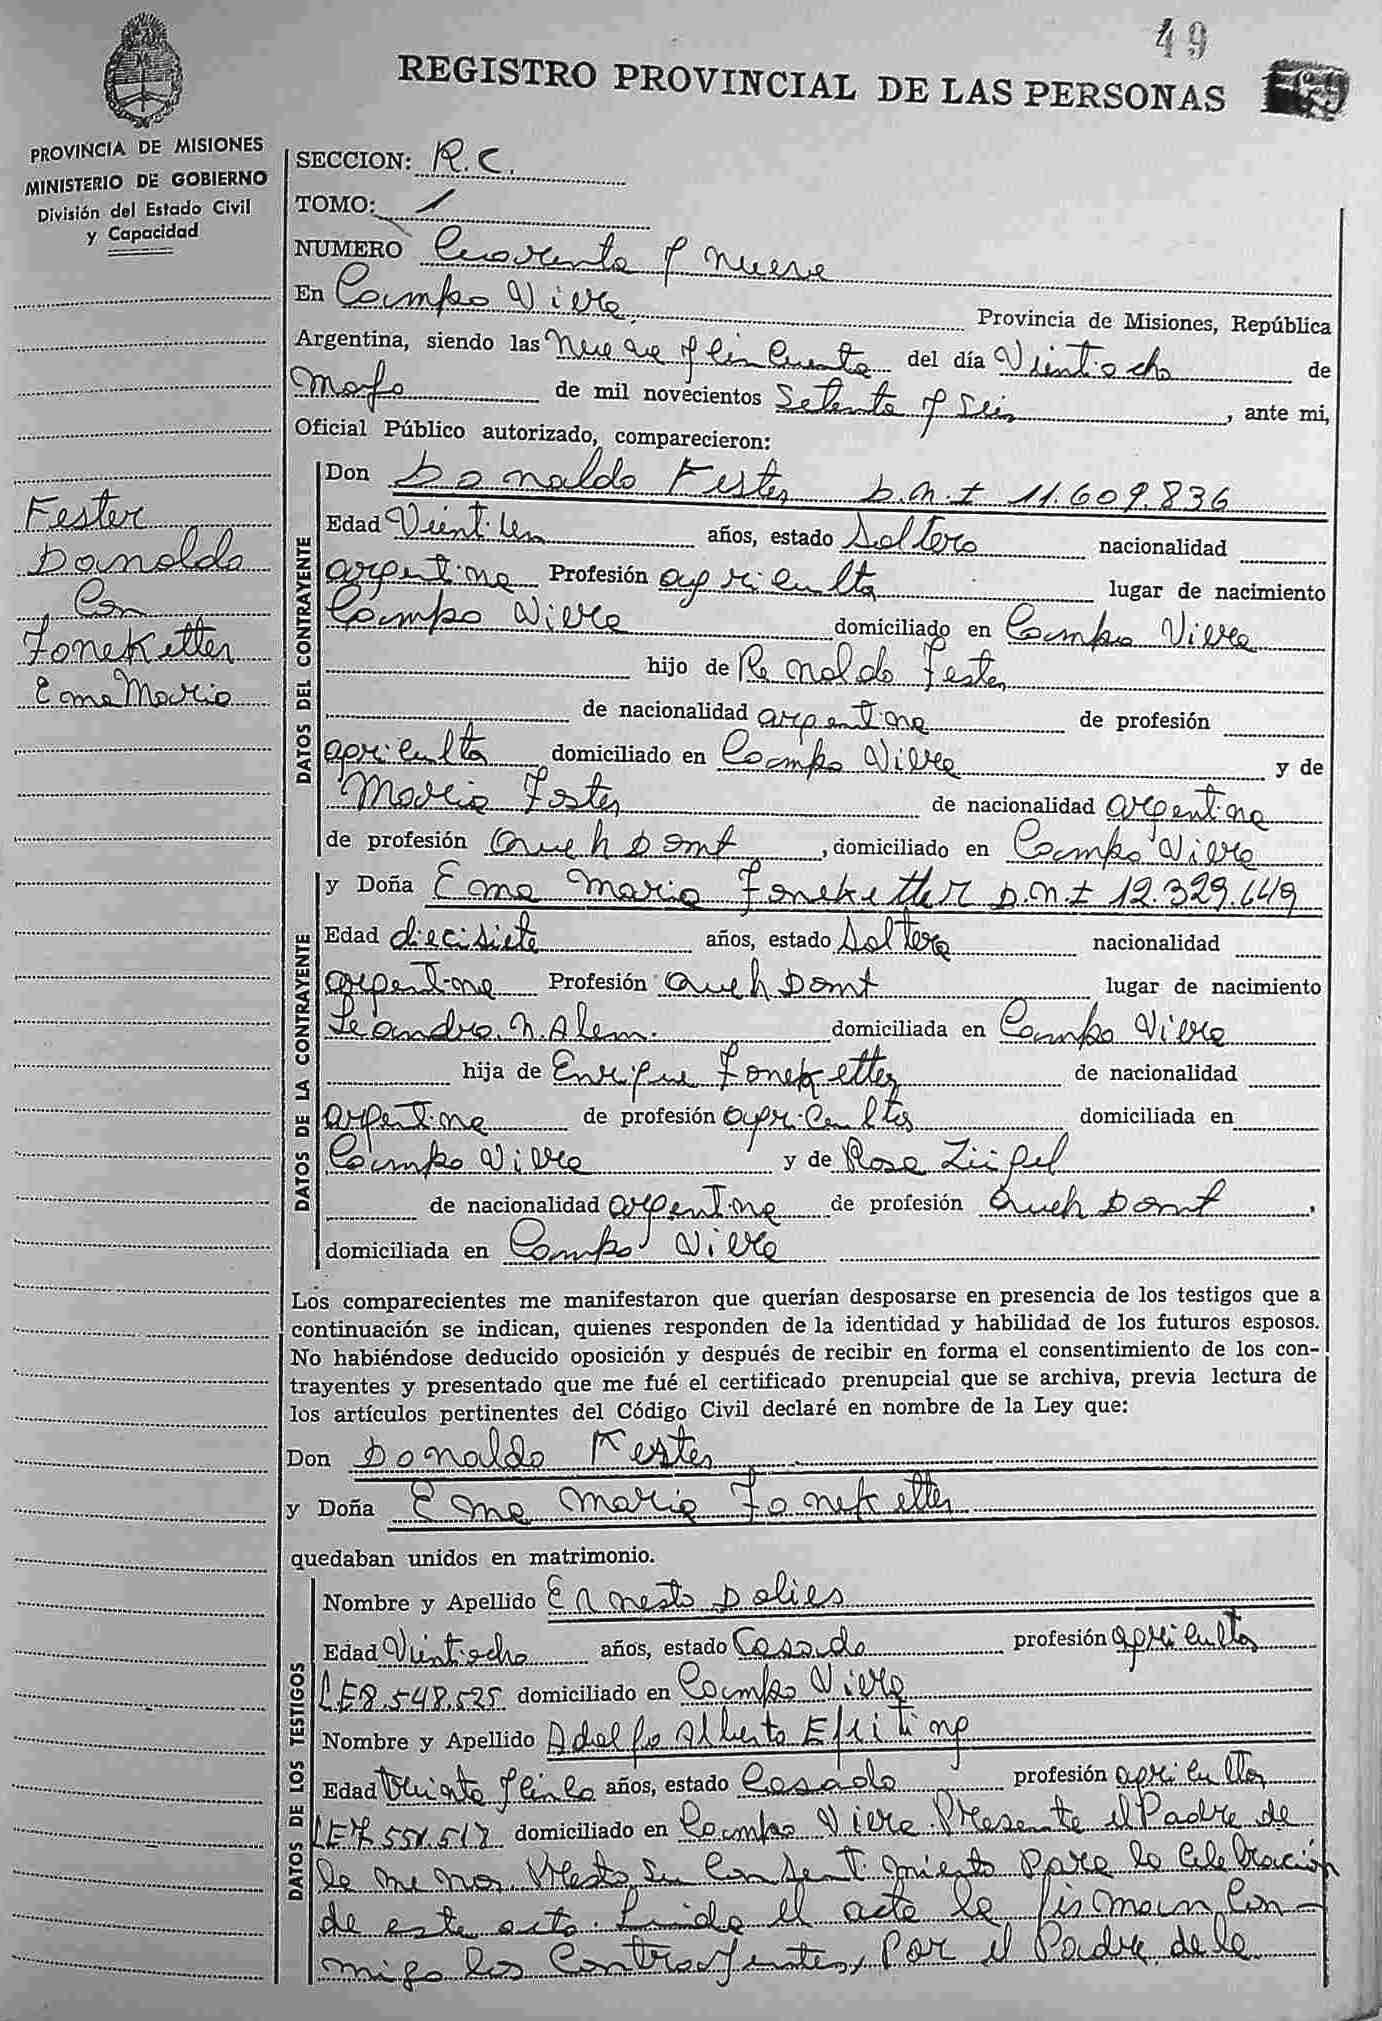 49
REGISTRO PROVINCIAL DE LAS PERSONAS
PROVINCIA DE MISIONES
MINISTERIO DE GOBIERNO
División del Estado Civil
y Capacidad
Fester
Donaldo
Con
Foneketter
Ema Maria
SECCION: R.C.
TOMO: 1
NUMERO Cuarenta y nueve
En Campo Viera Provincia de Misiones, República
Argentina, siendo las nueve y cincuenta del día Veintiocho de
Mayo de mil novecientos Setenta y Seis, ante mi,
Oficial Público autorizado, comparecieron:
DATOS DEL CONTRAYENTE
Don Donaldo Fester D.N.I 11.609.836
Edad años, estado Soltero nacionalidad
argentina Profesión agricultor lugar de nacimiento
Campo Viera domiciliado en Campo Viera
hijo de Renoldo Fester
de nacionalidad argentina de profesión
agricultor domiciliado en Campo Viera y de
Maria Foster de nacionalidad argentina
de profesión Queh Domt, domiciliado en Campo Viera
DATOS DE LA CONTRAYENTE
y Doña Ema Maria Foneketter D.N.I 12.329.649
Edad diecisiete años, estado Soltera nacionalidad
argentina Profesión Queh Domt lugar de nacimiento
Leandro N. Alem. domiciliada en Campo Viera
hija de Enrique Foneketter de nacionalidad
argentina de profesión agricultor domiciliada en
Campo Viera y de Rosa
de nacionalidad argentina de profesión Queh Domt,
domiciliada en Campo Viera
Los comparecientes me manifestaron que querían desposarse en presencia de los testigos que a
continuación se indican, quienes responden de la identidad y habilidad de los futuros esposos.
No habiéndose deducido oposición y después de recibir en forma el consentimiento de los con-
trayentes y presentado que me fué el certificado prenupcial que se archiva, previa lectura de
los artículos pertinentes del Código Civil declaré en nombre de la Ley que:
Don Donaldo Fester
y Doña Ema Maria Foneketter
quedaban unidos en matrimonio.
DATOS DE LOS TESTIGOS
Nombre y Apellido Ernesto Dolies
Edad Veintiocho años, estado Casado profesión agricultor
LE 8.548.525 domiciliado en Campo Viera
Nombre y Apellido Adolfo Alberto
Edad Treinta y cinco años, estado Casado profesión agricultor
LE domiciliado en Campo Viera. Presente el Padre de
la menor Presto su Consentimiento para la Celebración
de este acto. Leida el acta la firman Con-
migo los Contrayentes, Por el Padre de la